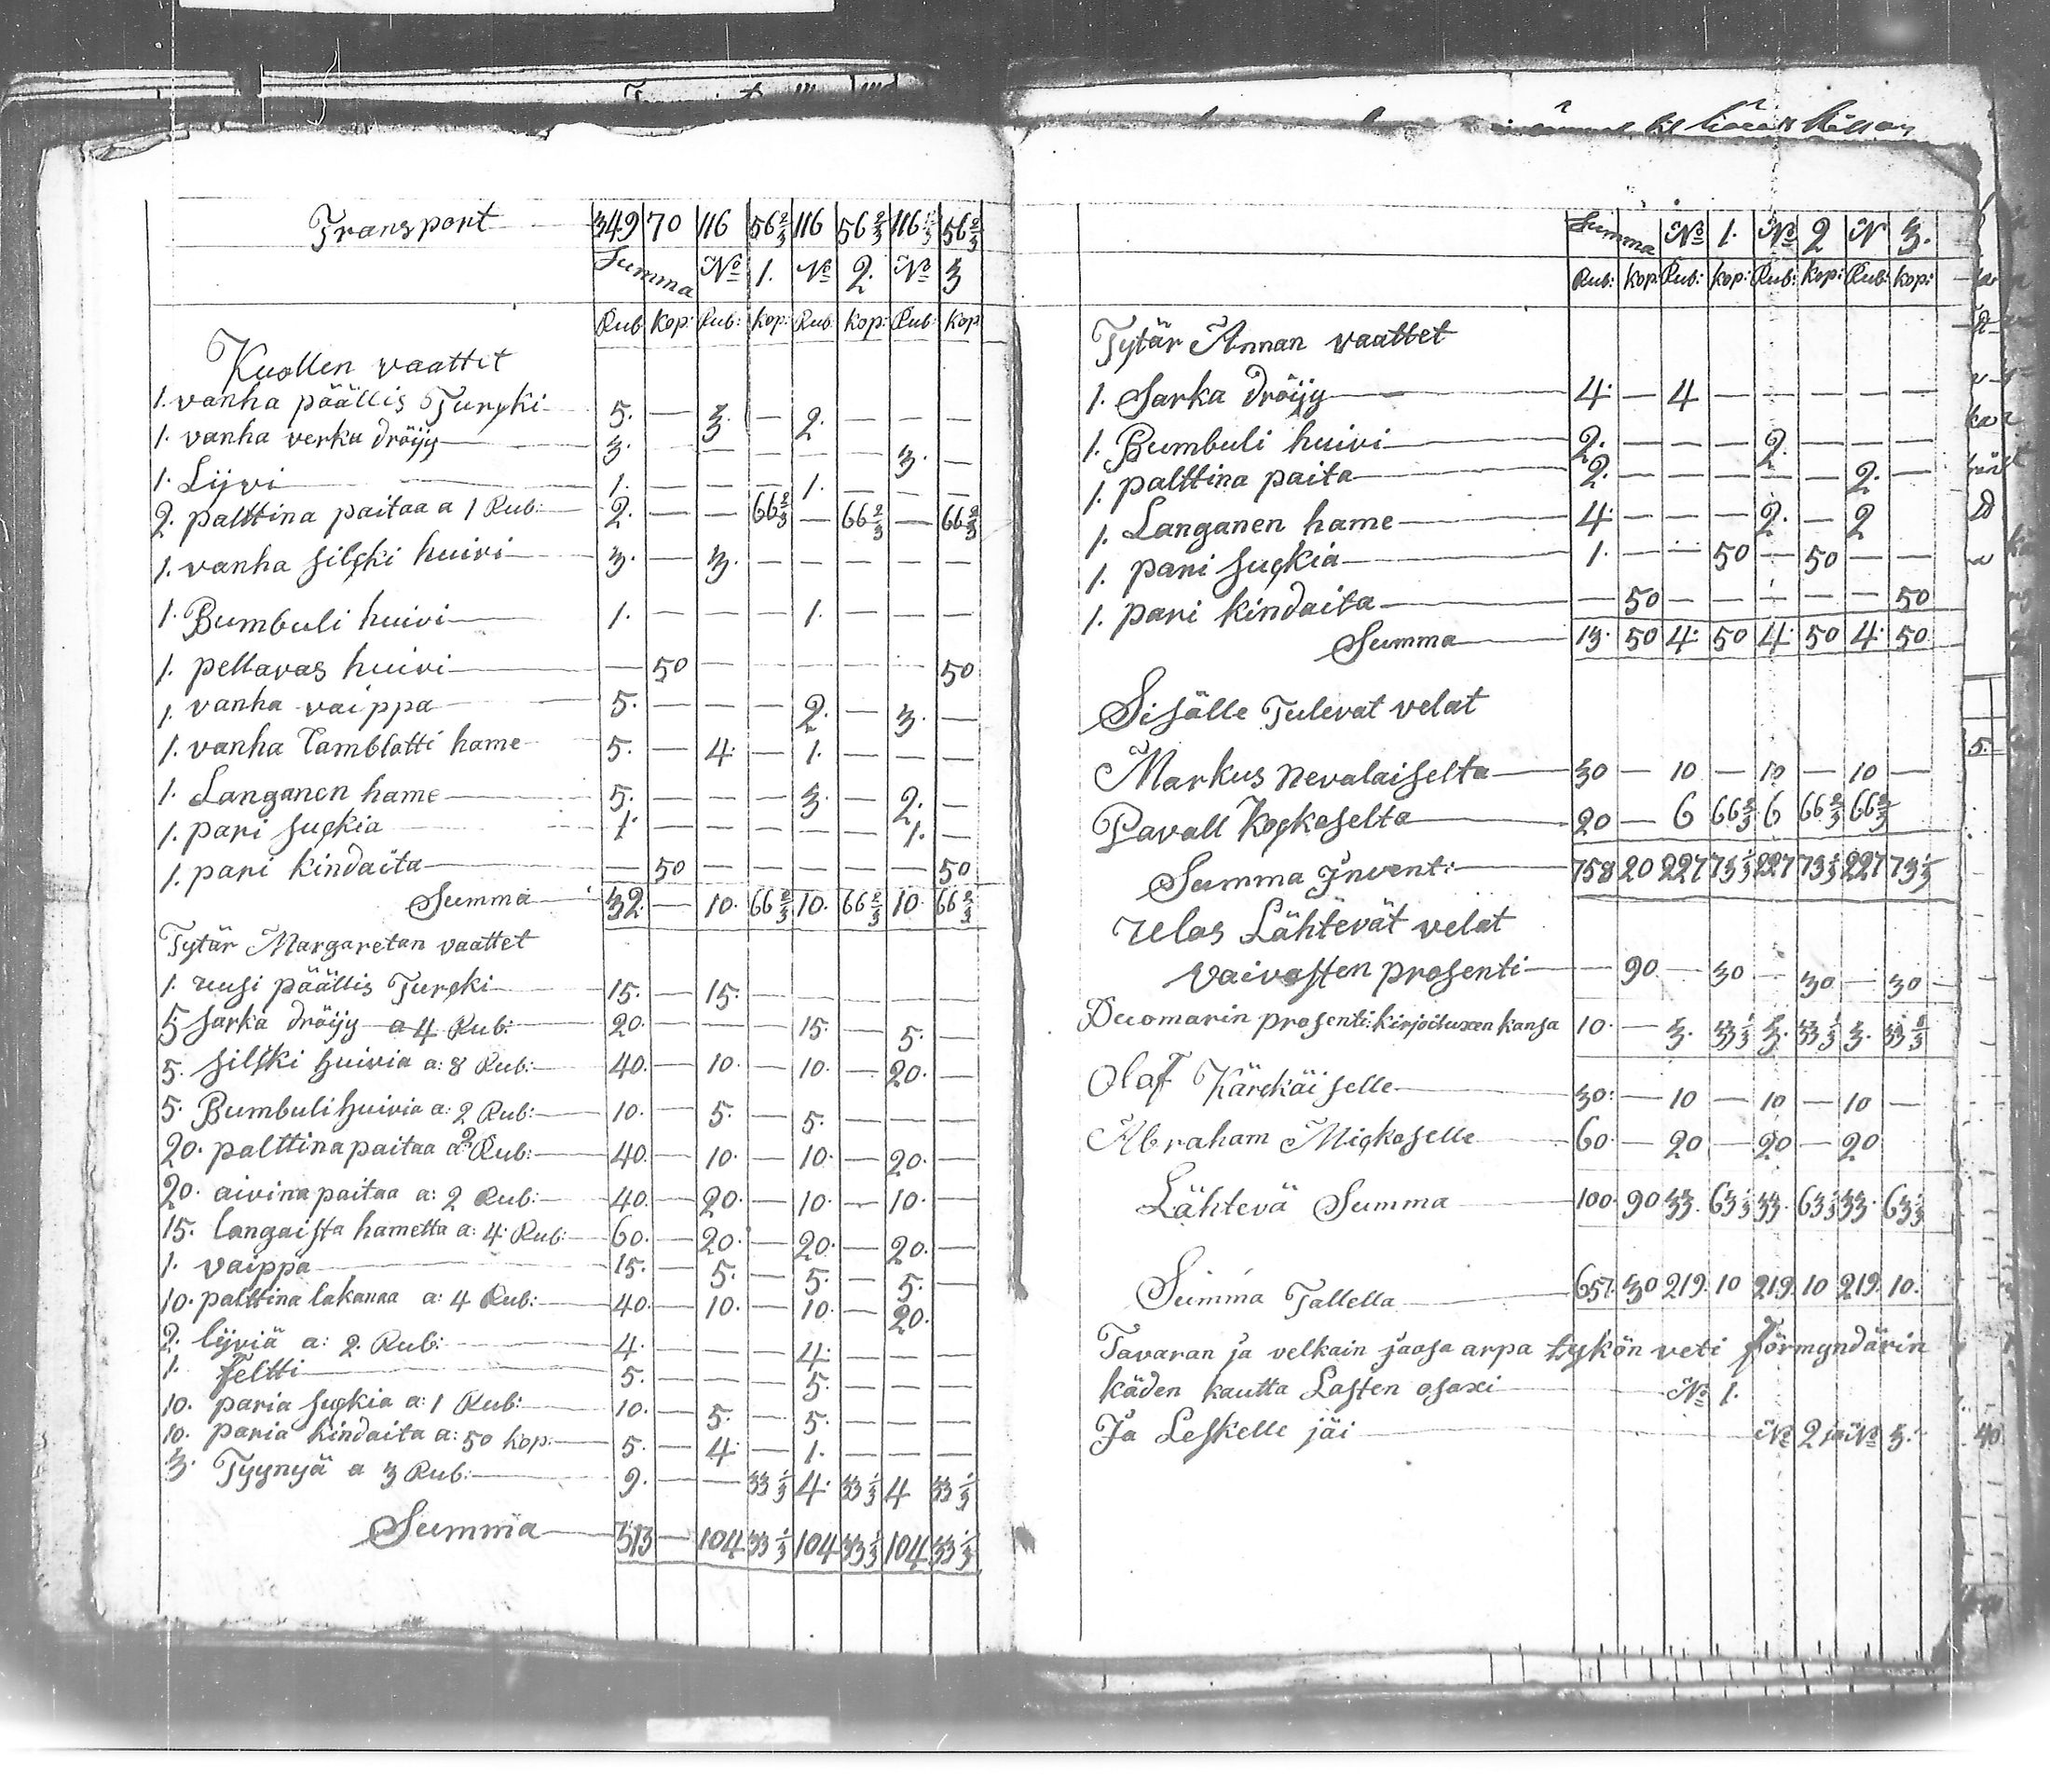 Transport 349 70 116 56 2/3 116 56 2/3 116 56 2/3
Summa No 1. No 2. No 3
Rub kop: Rub: kop: Rub: kop: Rub: kop
Kuollen vaattet
1. vanha päällis Turcki 5. — 3. — 2. — — —
1. vanha verka dröijy 3. — — — — — 3. —
1. Lijvi 1. — — — 1. — — —
2. palttina paitaa a 1 Rub: 2. — — 66 2/3 — 66 2/3 — 66 2/3
1. vanha silcki huivi 3. — 3. — — — — —
1. Bumbuli huivi 1. — — — 1. — — —
1. pellavas huivi — 50 — — — — — 50
1. vanha vaippa 5. — — — 2. — 3. —
1. vanha Camblotti hame 5. — 4. — 1. — — —
1. Langanen hame 5. — — — 3. — 2. —
1. pari suckia 1. — — — — — 1. —
1. pari kindaita — 50 — — — — — 50
Summa 32. — 10. 66 2/3 10. 66 2/3 10. 66 2/3
Tytär Margaretan vaattet
1. uusi päällis Turcki 15. — 15. — — — — —
5 sarka dröijy a 4 Rub: 20. — — — 15. — 5. —
5. silcki huivia a: 8 Rub: 40. — 10. — 10. — 20. —
5. Bumbuli huivia a: 2 Rub: 10. — 5. — 5. — — —
20. palttina paitaa a 2 Rub: 40. — 10. — 10. — 20. —
20. aivina paitaa a: 2 Rub: 40. — 20. — 10. — 10. —
15. langaista hametta a: 4 Rub: 60. — 20. — 20. — 20. —
1. vaippa 15. — 5. — 5. — 5. —
10. palttina lakanaa a: 4 Rub: 40. — 10. — 10. — 20.
2. lijviä a: 2. Rub: 4. — — — 4. — — —
1. Feltti 5. — — — 5. — — —
10. paria suckia a: 1 Rub: 10. — 5. — 5. — — —
10. paria kindaita a: 50 kop: 5. — 4. — 1. — — —
3. Tyynyä a 3 Rub: 9. — — 33 1/3 4. 33 1/3 4 33 1/3
Summa 313 — 104 33 1/3 104 33 1/3 104 33 1/3
Summa No 1. No 2 N 3.
Rub: kop: Rub: kop: Rub: kop: Rub: kop:
Tytär Annan vaattet
1. Sarka dröijy 4. — 4 — — — — —
1. Bumbuli huivi 2. — — — 2. — — —
1. palttina paita 2. — — — — — 2. —
1. Langanen hame 4. — — — 2. — 2
1. pari suckia 1. — — 50 — 50 — —
1. pari kindaita — 50 — — — — — 50
Summa 13. 50 4. 50 4. 50 4. 50
Sisälle Tulevat velat
Markus Nevalaiselta 30 — 10 — 10 — 10 —
Pavall Kockoselta 20 — 6 66 2/3 6 66 2/3 66 2/3
Summa Invent: 758 20 227 73 1/3 227 73 1/3 227 73 1/3
Ulos Lähtevät velat
Vaivasten prosenti — 90 — 30 — 30 — 30 —
Duomarin prosenti: kirjoituxen kansa 10. — 3. 33 1/3 3. 33 1/3 3. 33 1/3
Olof Kärckäiselle 30: — 10 — 10 — 10 —
Abraham Mickoselle 60. — 20 — 20 — 20
Lähtevä Summa 100. 90 33. 63 1/3 33. 63 1/3 33. 63 1/3
Summa Tallella 657. 30 219. 10 219. 10 219. 10.
Tavaran ja velkain jaosa arpa tykön veti Förmyndärin
käden kautta Lasten osaxi No 1.
Ja Leskelle jäi No 2 ja No 3.